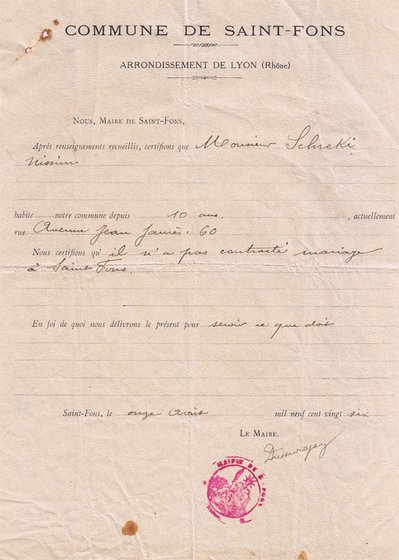 COMMUNE DE SAINT-FONS
ARRONDISSEMENT DE LYON (Rhône)
Nous, Maire de Saint-Fons,
Après renseignements recueillis, certifions que Monsieur Schreki
Nissim
habite notre commune depuis 10 ans. , actuellement
rue Avenue Jean Jaurès. 60
Nous certifions qu il n'a pas contracté mariage
à Saint Fons.
En foi de quoi nous délivrons le présent pour servir ce que doit
Saint-Fons, le onze Août mil neuf cent vingt six
Le Maire.
MAIRIE DE